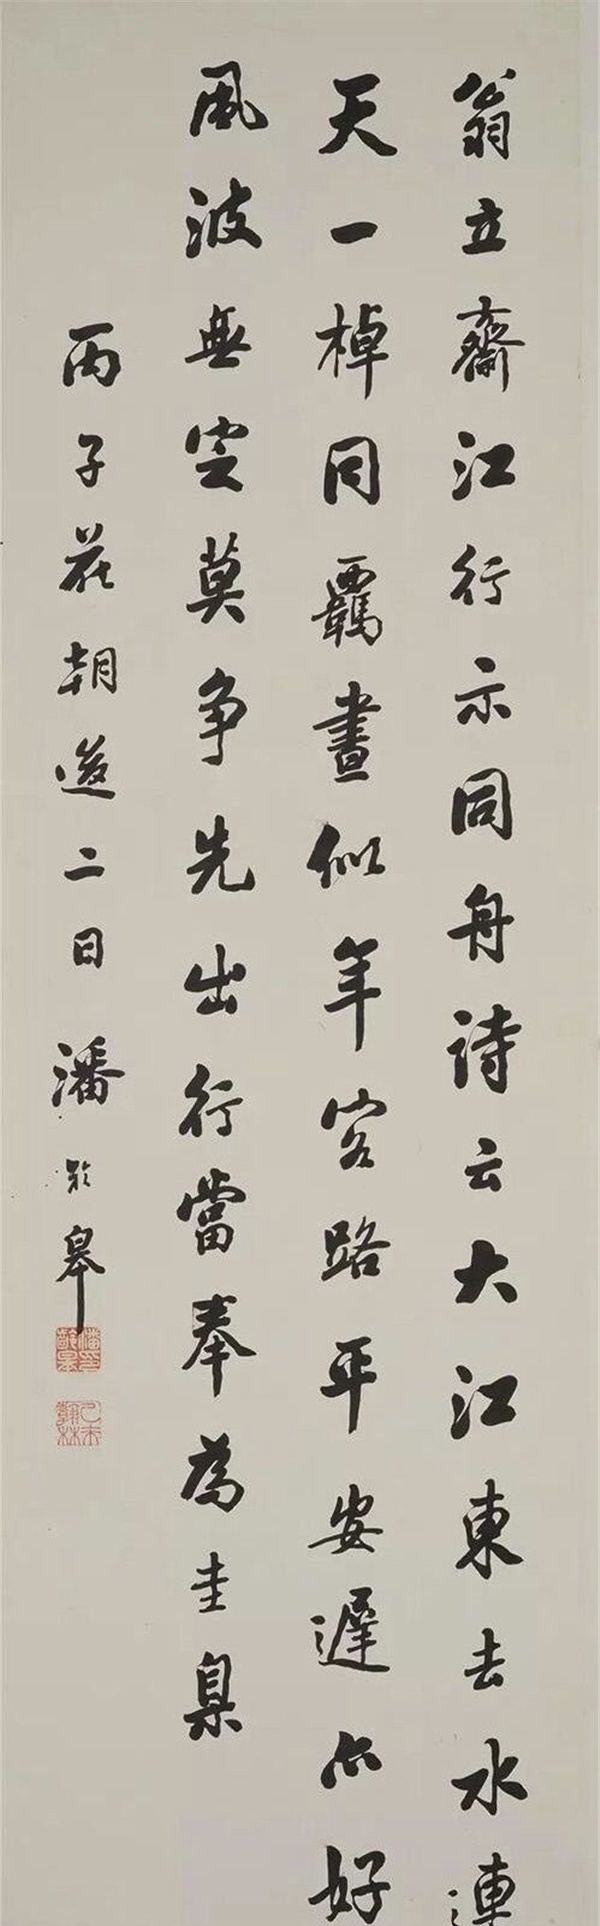 翁立齋江行示同舟詩云大江東去水連
天一棹同羈晝似年客路平安遲亦好
風波無定莫争先出行當奉為圭臬
丙子花朝後二日潘齡皋
潘印齡皋
乙未翰林